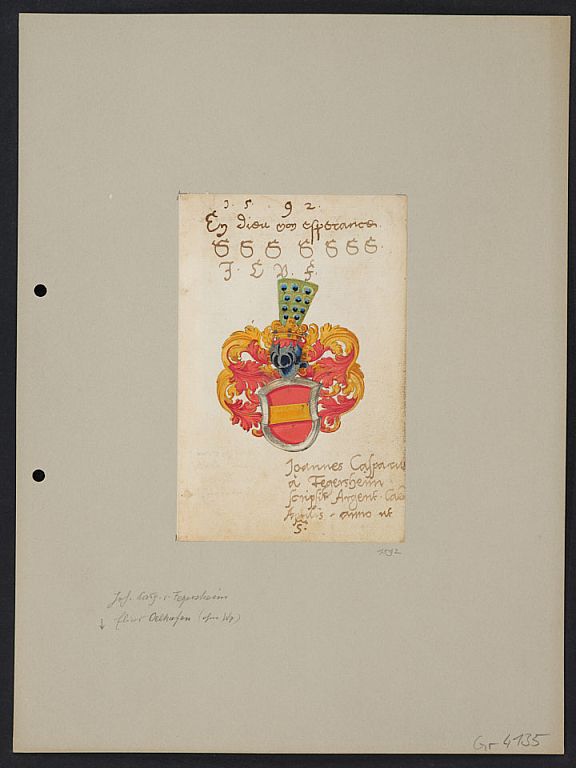 1 5 9 2.
En dieu mon esperance
S S S S S S S.
J. C. V. F.
Joannes Casparus
à Fegersheim
scripsit Argent. Cal
anno ut
S.
1592
Joh. Casp. v. Fegersheim
↓ Oelhafen (ohne Wp.)
Gr 4135